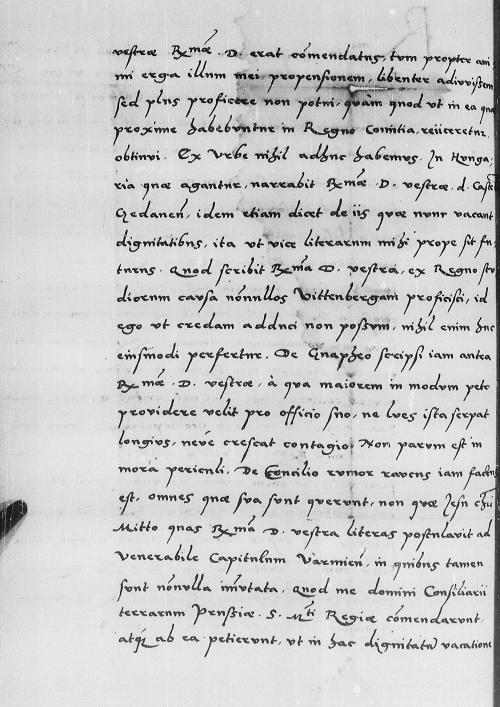 vestræ Rx̃mæ. D. erat cõmendatus, tum propter ani
mi erga illum mei propensionem, libenter adivvissem
sed plus proficere non potui, quàm quod vt in ea quæ
proxime habebuntur in Regno Comitia, reijceretur,
obtinui. Ex Vrbe nihil adhuc habemus. In Hunga,
ria quæ agantur, narrabit Rx̃mæ D. vestræ. d.
Gedaneñ, idem etiam dicet de iis quæ nunc vacant
dignitatibus, ita vt vice literarum mihi prope sit fu,
turus. Quod scribit Rx̃ma D. vestra, ex Regno stu
diorum causa nõnullos Vittenbergam proficisci, id
ego vt credam adduci non possum, nihil enim huc
eiusmodi perfertur. De Gnapheo scripsi iam antea
Rx̃mæ. D. vestræ, à qua maiorem in modum peto
providere velit pro officio suo, ne lues ista serpat
longius, neve crescat contagio. Non parum est in
mora periculi. De Concilio rumor raucus iam factus
est. omnes quæ sua sunt querunt, non quæ Jesu chr̃i
Mitto quas Rx̃ma D. vestra literas postulavit ad
Venerabile Capitulum Varmieñ, in quibus tamen
sunt nõnulla im̃utata. Quod me domini Consiliarii
terrarum Prussiæ. S. Mti Regiæ cõmendarunt
atq; ab ea petierunt, vt in hac dignitatũ vacatione